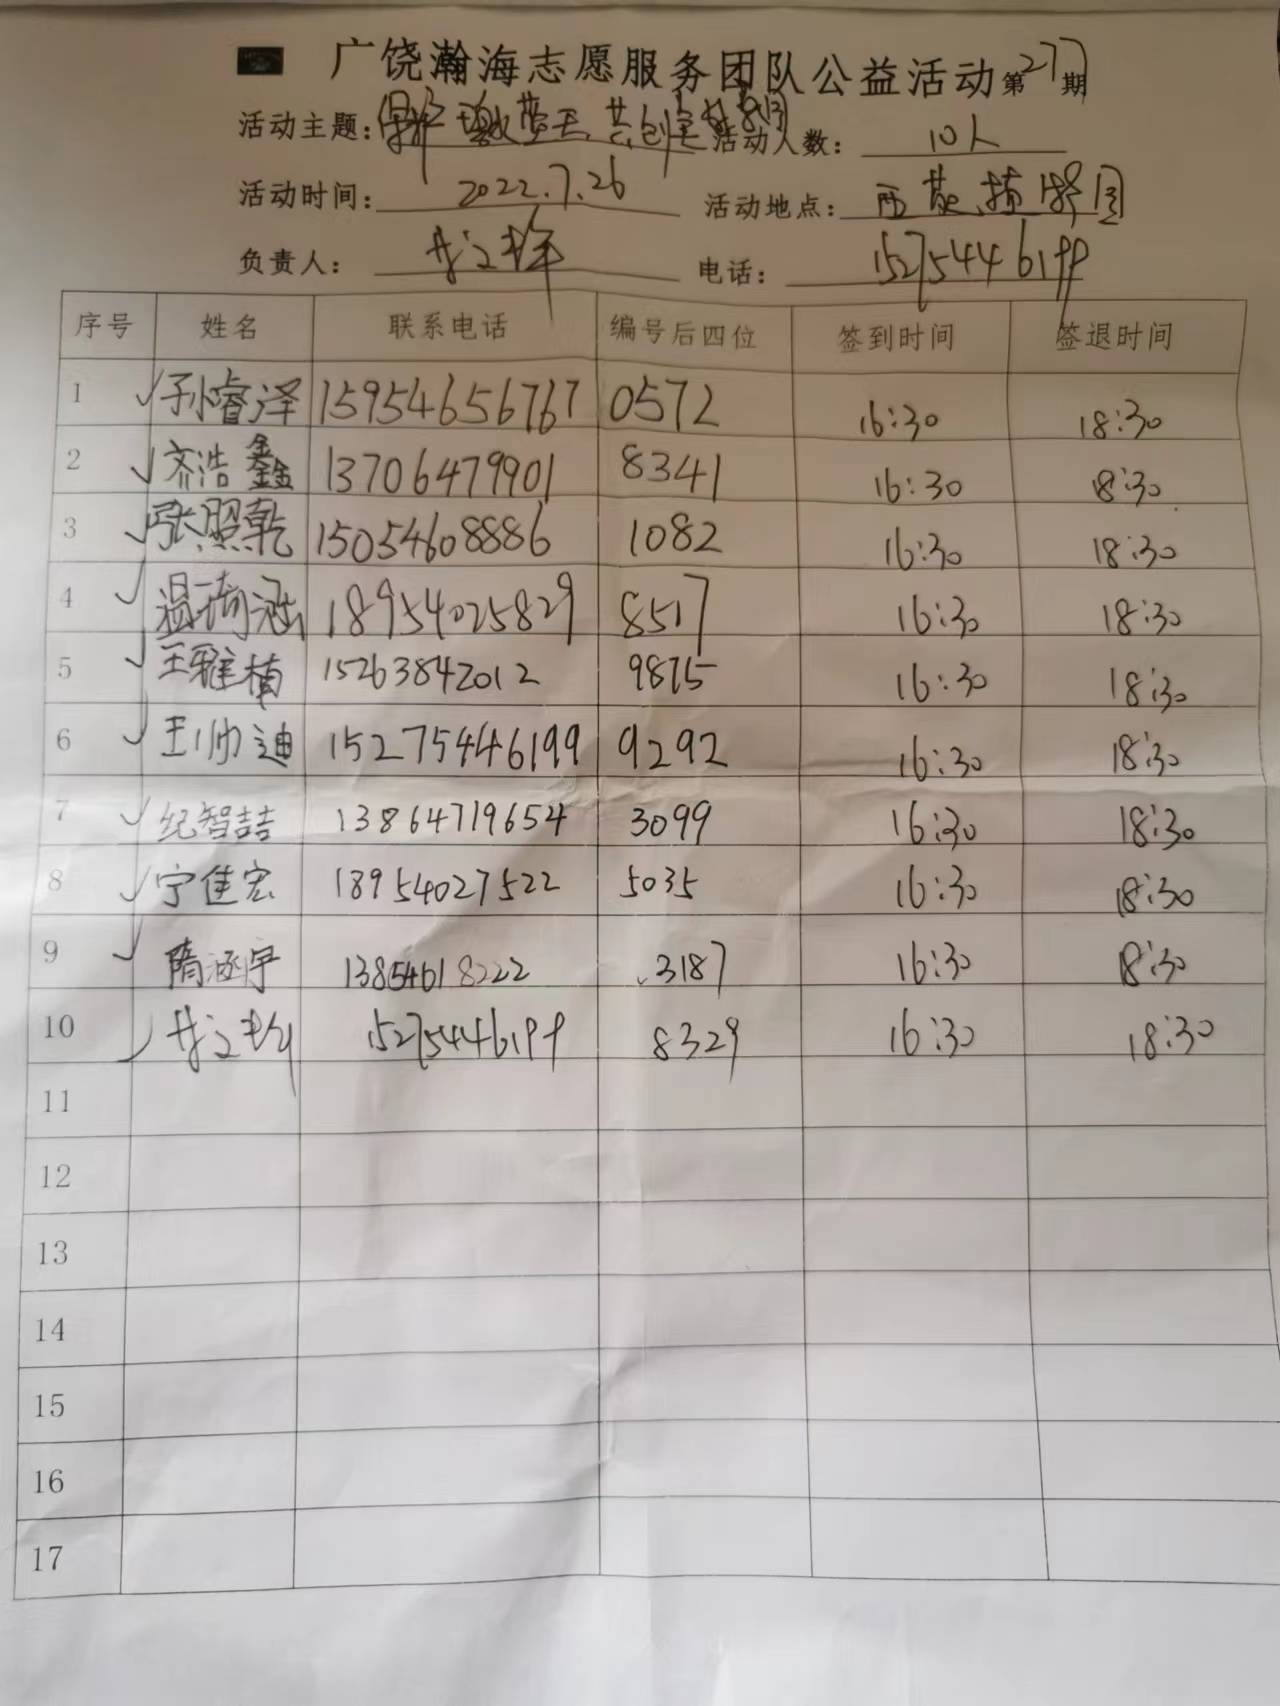 广饶瀚海志愿服务团队公益活动第277期
活动主题: 共创 活动人数: 10人
活动时间: 2022.7.26 活动地点: 西苑植物园
负责人: 电话: 15275446199
序号 姓名 联系电话 编号后四位 签到时间 签退时间
1 孙睿泽 15954656767 0572 16:30 18:30
2 齐浩鑫 13706479901 8341 16:30 18:30
3 张照乾 15054608886 1082 16:30 18:30
4 温琦涵 18954025829 8517 16:30 18:30
5 王雅楠 15263842012 9875 16:30 18:30
6 王帅迪 15275446199 9292 16:30 18:30
7 纪智喆 13864719654 3099 16:30 18:30
8 宁佳宏 18954027522 5035 16:30 18:30
9 隋涵宇 13854618222 3187 16:30 18:30
10 15275446199 8329 16:30 18:30
11
12
13
14
15
16
17